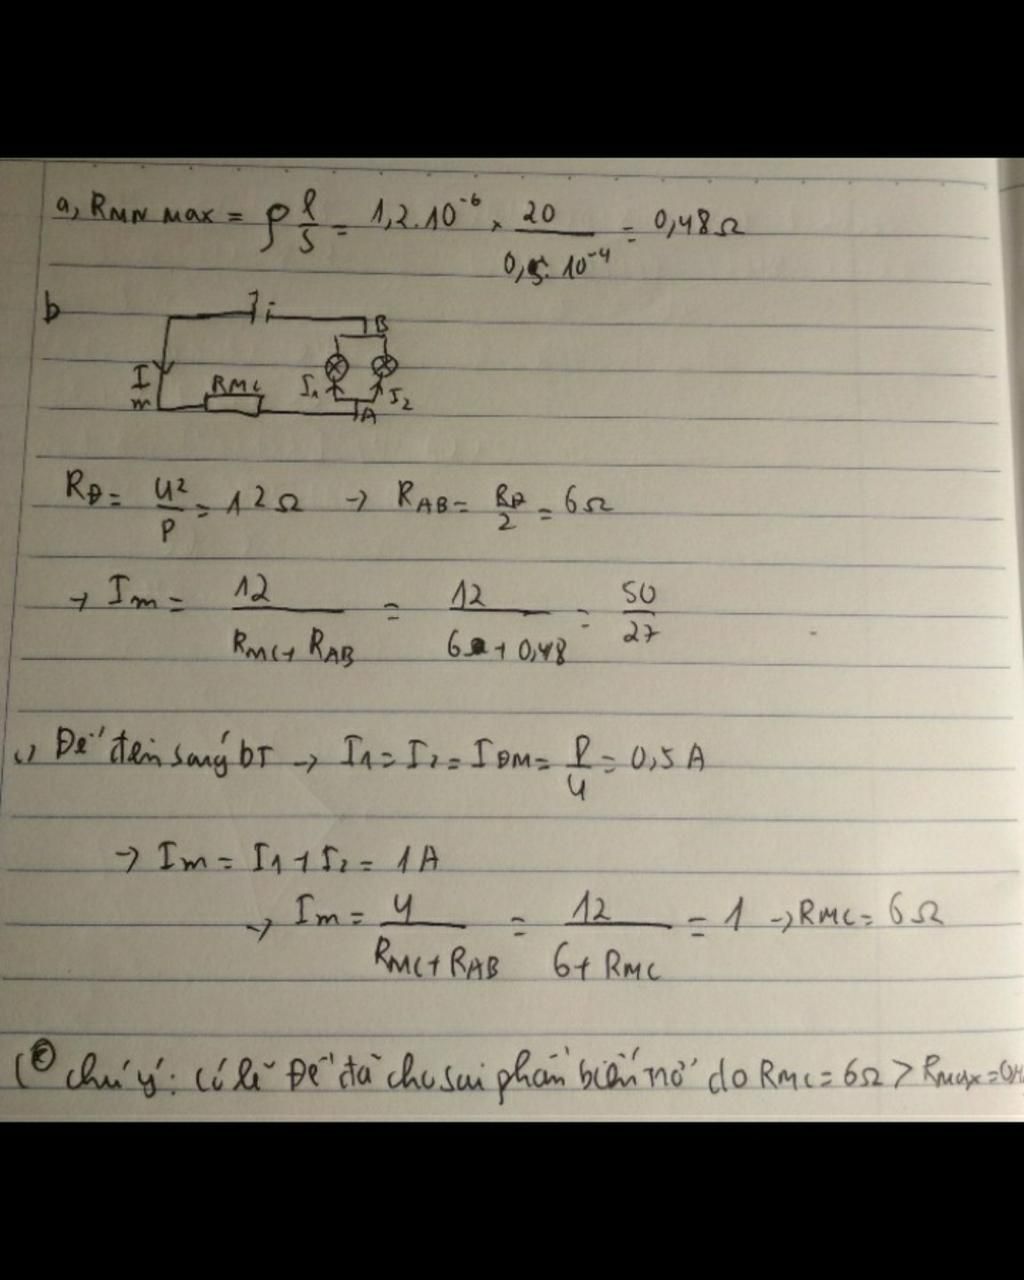 a, RMN max = ρ l/S = 1,2.10⁻⁶ × 20/0,5.10⁻⁴ = 0,48Ω
b
B
I
m
RMC
I₁
I₂
A
RĐ = U²/P = 12Ω → RAB = RĐ/2 = 6Ω
→ Im = 12/RMC + RAB = 12/6 + 0,48 = 50/27
c) Để đèn sáng bT → I₁ = I₂ = IĐM = P/U = 0,5 A
→ Im = I₁ + I₂ = 1A
→ Im = U/RMC + RAB = 12/6 + RMC = 1 → RMC = 6Ω
chú ý: có lẽ Đề đã cho sai phần biến trở do RMC = 6Ω > Rmax =